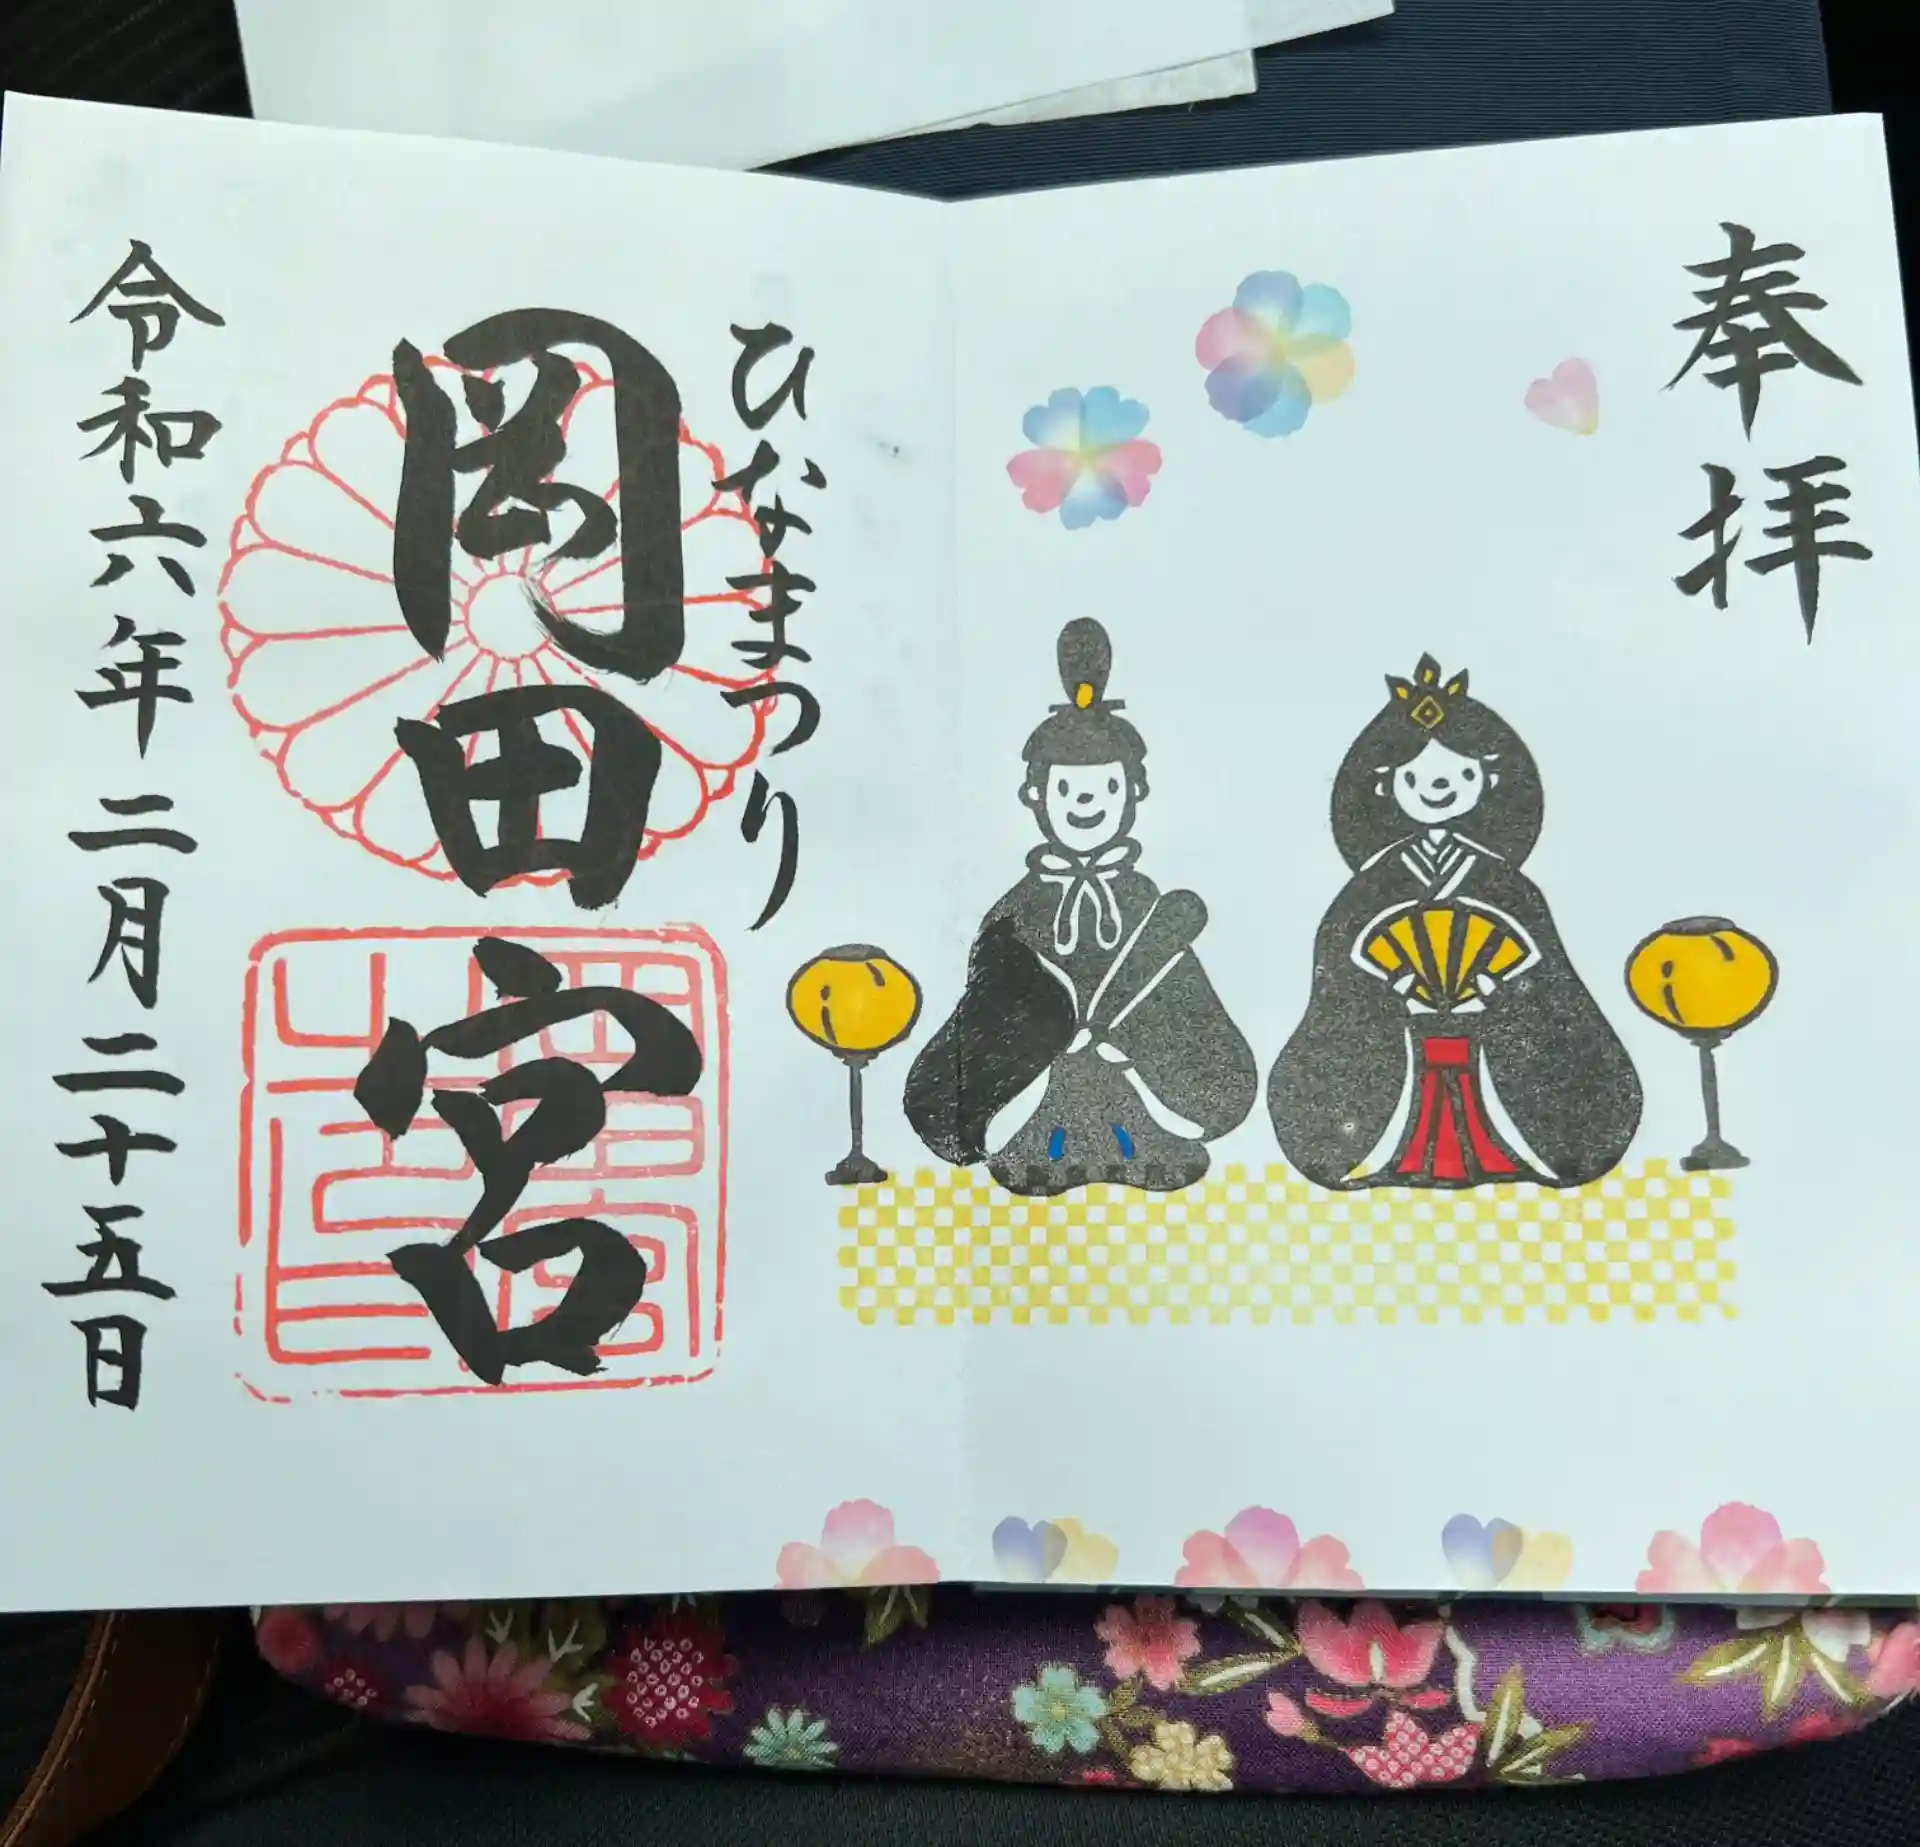 奉拝
ひなまつり
岡田宮
令和六年二月二十五日